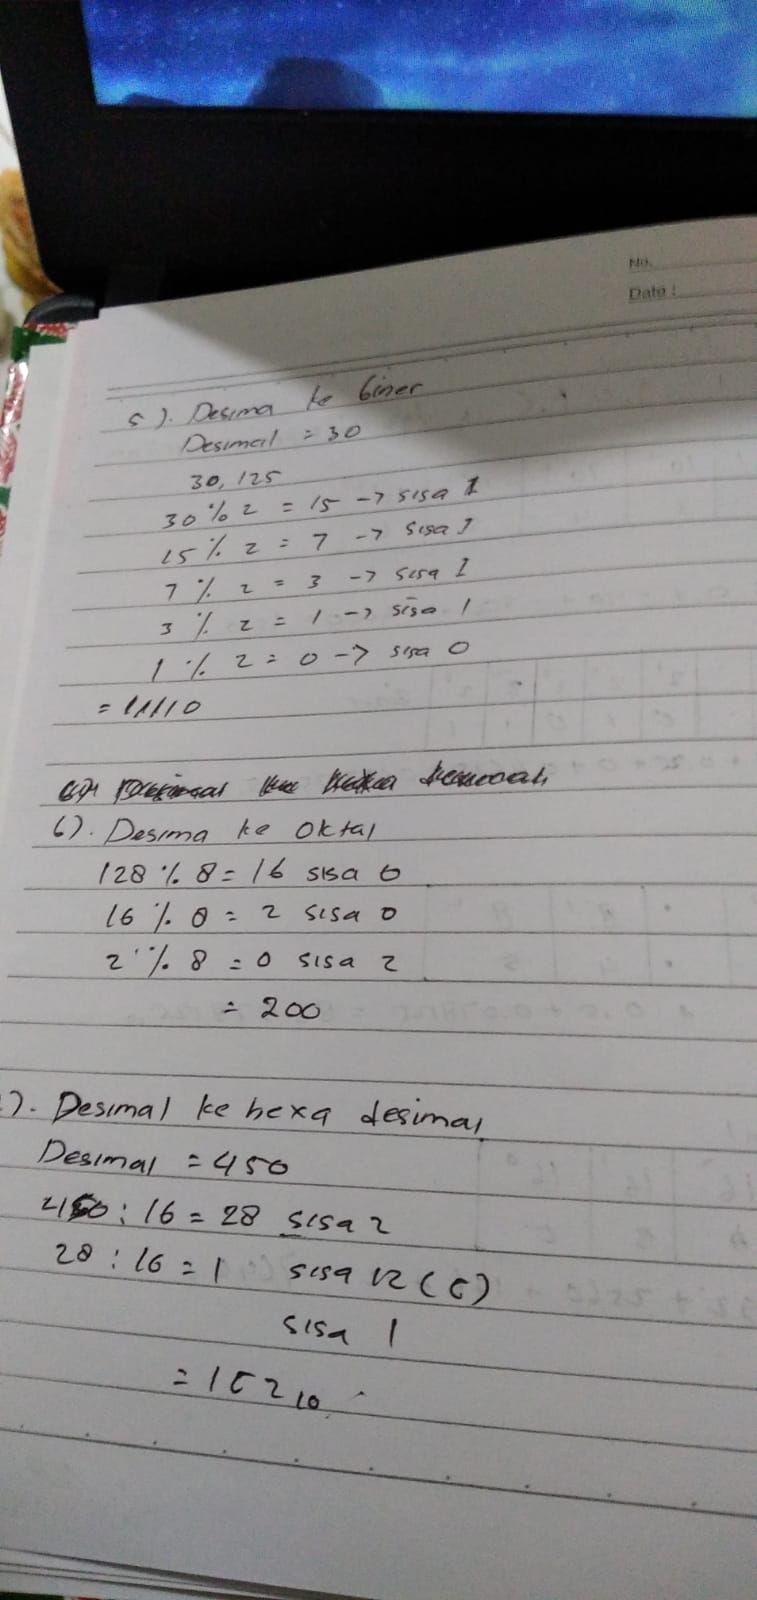 No.
Date :
5). Desima ke biner
Desimal = 30
30,125
30 % 2 = 15 -> sisa 1
15 % 2 = 7 -> sisa 1
7 % 2 = 3 -> sisa 1
3 % 2 = 1 -> sisa 1
1 % 2 = 0 -> sisa 0
= 11110
6). Desima ke Oktal
128 % 8 = 16 sisa 0
16 % 8 = 2 sisa 0
2 % 8 = 0 sisa 2
= 200
). Desimal ke hexa desimal
Desimal = 450
450 : 16 = 28 sisa 2
28 : 16 = 1 sisa 12 (C)
sisa 1
= 1C2 10